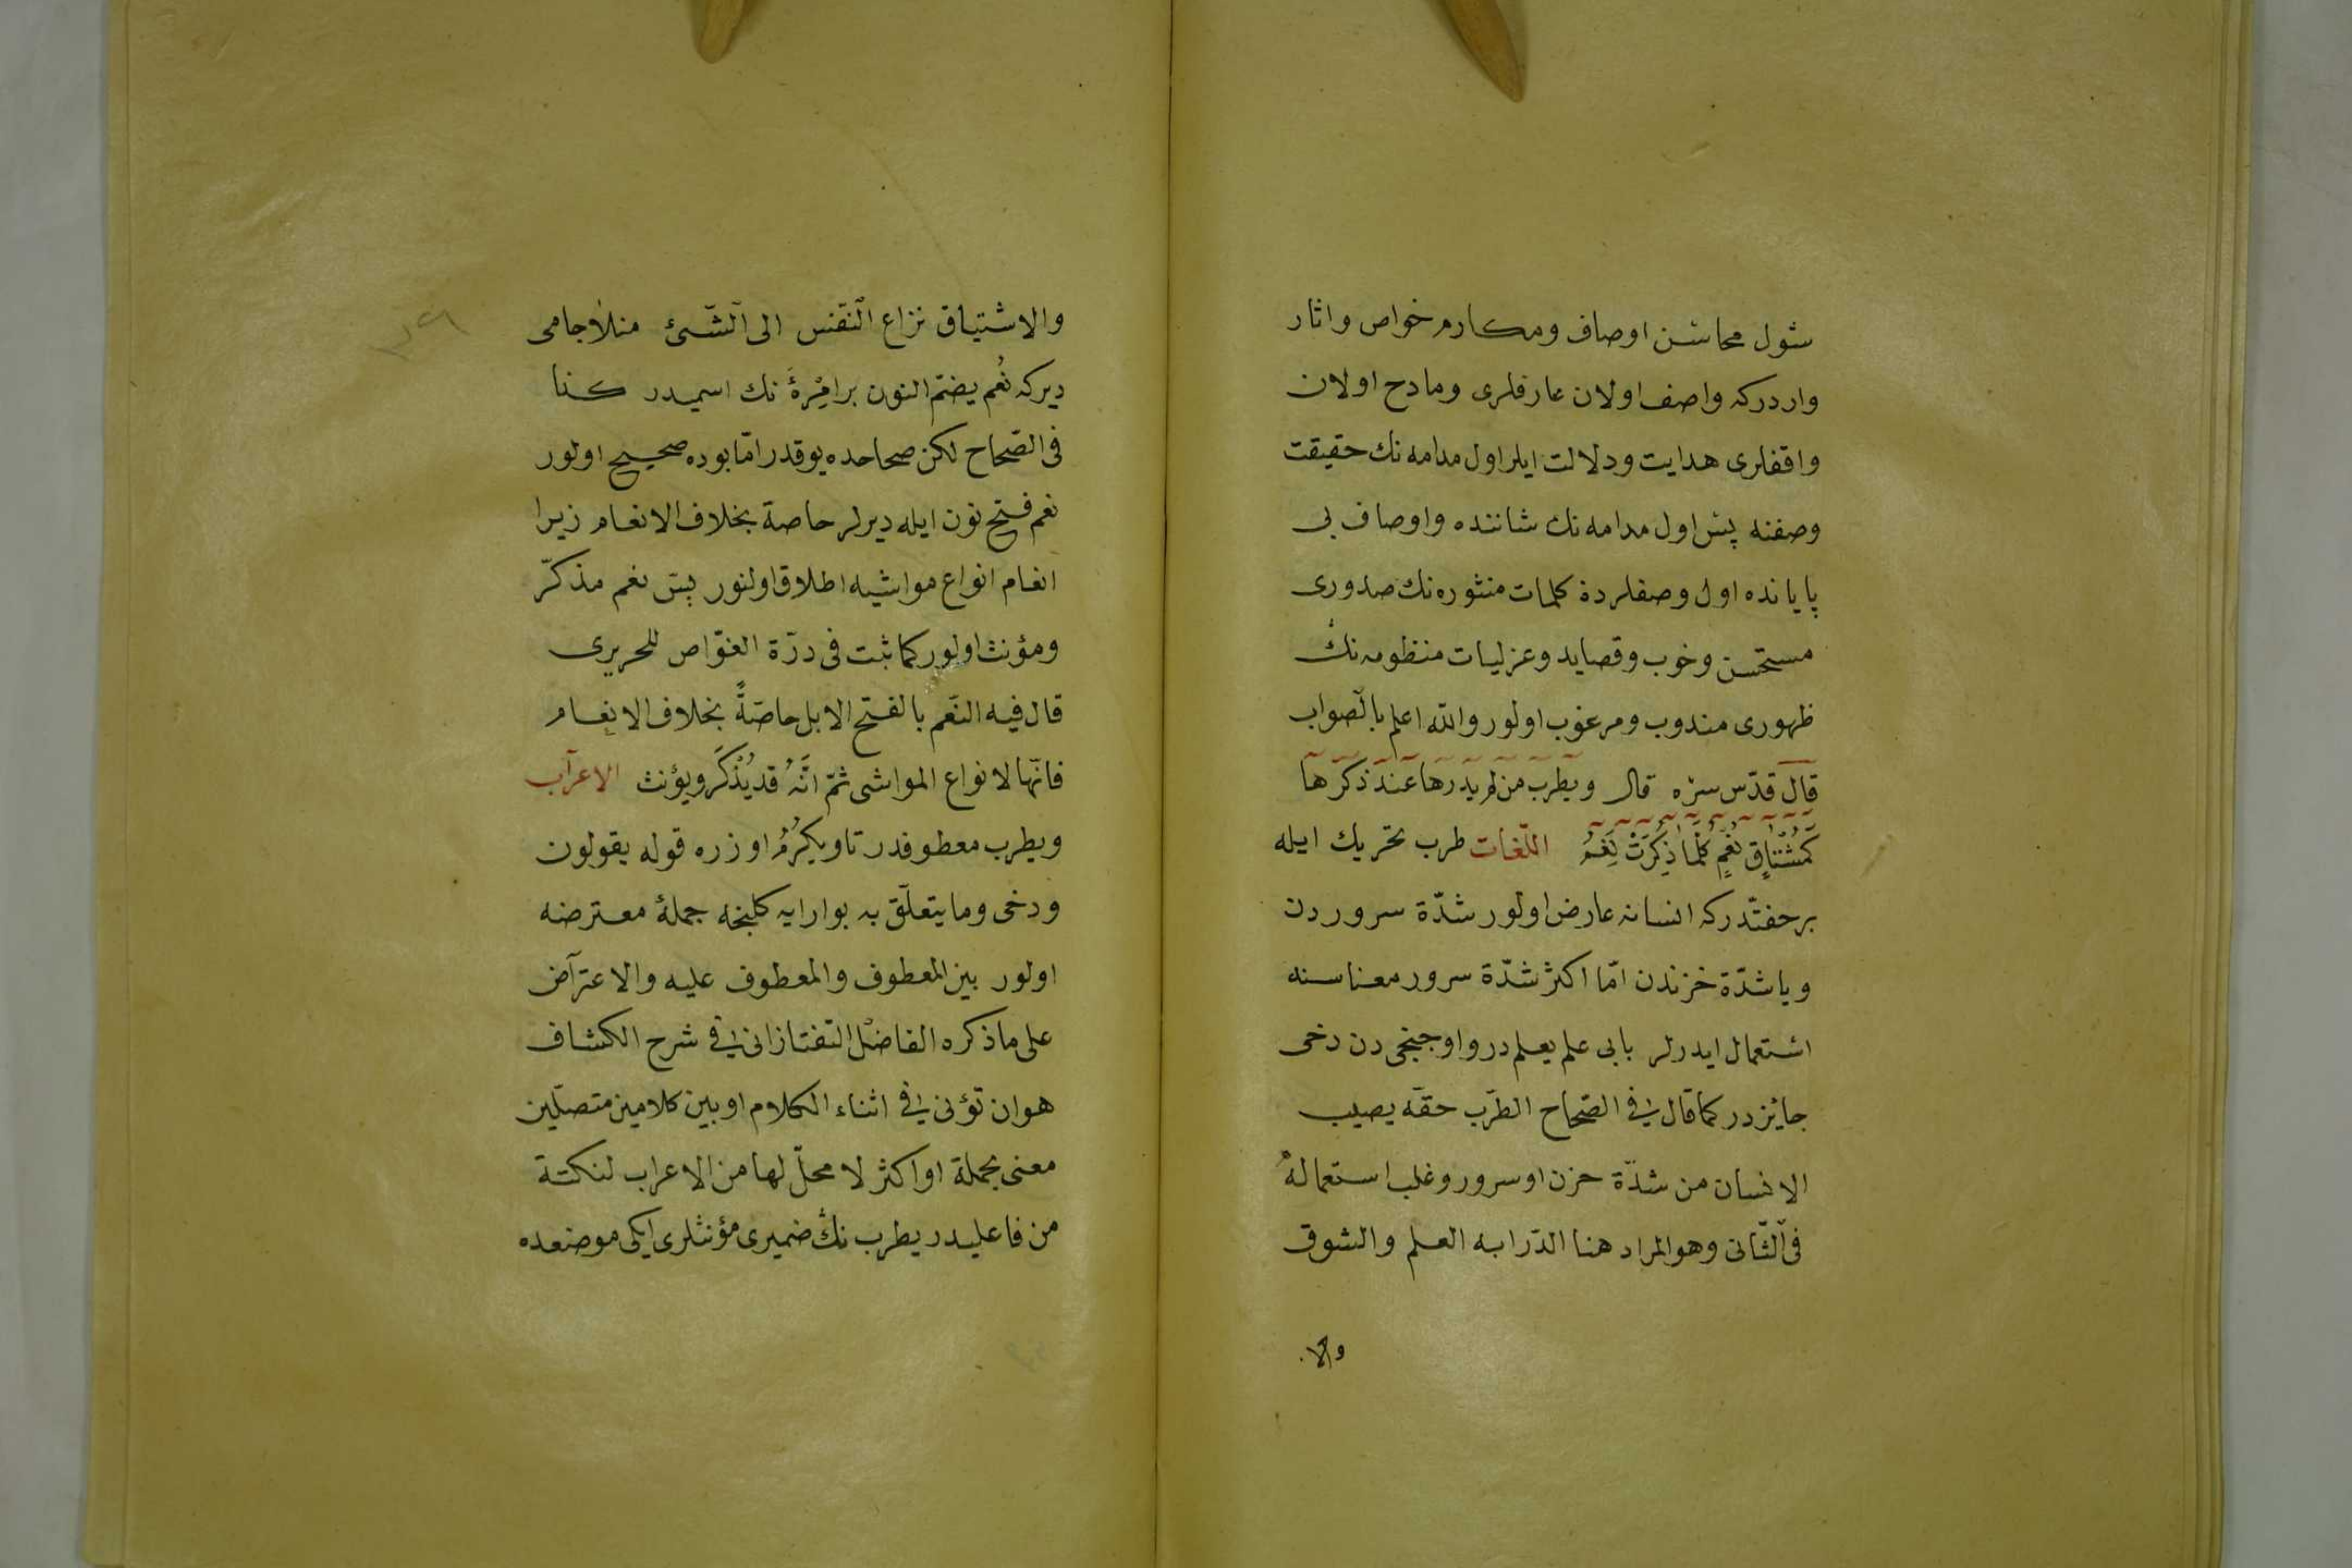 شول محاسن اوصاف ومكارم خواص واثار
واردركه واصف اولان عارفلرى ومادح اولان
واقفلرى هدايت ودلالت ايلر اول مدامه نك حقيقت
وصفنه پس اول مدامه نك شاننده واوصاف بى
پاياننده اول وصفلردۀ كلمات منثوره نك صدورى
مستحسن وخوب وقصايد وغزليات منظومه نك
ظهورى مندوب ومرغوب اولور والله اعلم بالصواب
قال قدّس سرّه قال ويطرب من لم يدرها عند ذكرها
كَمُشْتَاقِ نُعْمٍ كُلَّمَا ذُكِرَتْ نُعْمُ اللّغات طرب تحريك ايله
برخفتّدركه انسانه عارض اولور شدّة سروردن
وياشدّة حزندن امّا اكثر شدّة سرور معناسنه
استعمال ايدرلر بابى علم يعلم در واوجنجى دن دخى
جائزدر كما قال فى الصّحاح الطّرب خفّه يصيب
الانسان من شدّة حزن او سرور وغلب استعماله
فى الثّانى وهو المراد هنا الدّرايه العلم والشوق
والا
والاشتياق نزاع النّفس الى الشّئ منلا جامى
ديركه نُعم بضمّ النون برامْرِءَۀ نك اسميدر كذا
فى الصّحاح لكن صحاحده يوقدر امّا بوده صحيح اولور
نعم فتح نون ايله ديرلر خاصة بخلاف الانعام زيرا
انعام انواع مواشيه اطلاق اولنور پس نعم مذكّر
ومؤنث اولور كما ثبت فى درّة الغوّاص للحريرى
قال فيه النّعم بالفتح الابل خاصّةً بخلاف الانعام
فانّها لانواع المواشى ثمّ انَّهُ قد يُذْكَر ويؤنث الاعراب
ويطرب معطوفدر تاويكرُمُ اوزره قوله يقولون
ودخى وما يتعلّق به بوارايه كلنجه جملۀ معترضه
اولور بين المعطوف والمعطوف عليه والاعتراض
على ما ذكره الفاضل التفتازانى فى شرح الكشاف
هو ان تؤتى فى اثناء الكلام او بين كلامين متصلين
معنى بجملة او اكثر لا محلّ لها من الاعراب لنكتة
من فاعليدر يطرب نك ضميرى مؤنثلرى ايكى موضعده